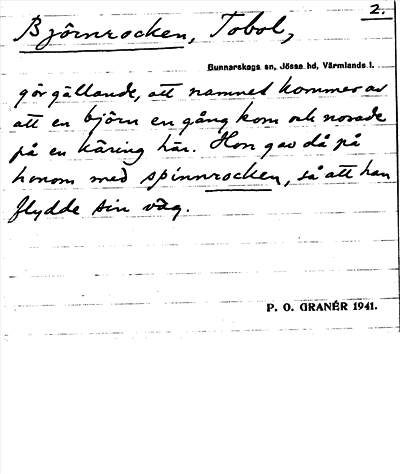 2.
Björnrocken, Tobol,
Gunnarskogs sn, Jösse hd, Värmlands l.
gör gällande, att namnet kommer av
att en björn en gång kom och norade
på en käring här. Hon gav då på
honom med spinnrocken, så att han
flydde sin väg.
P. O. GRANÉR 1941.